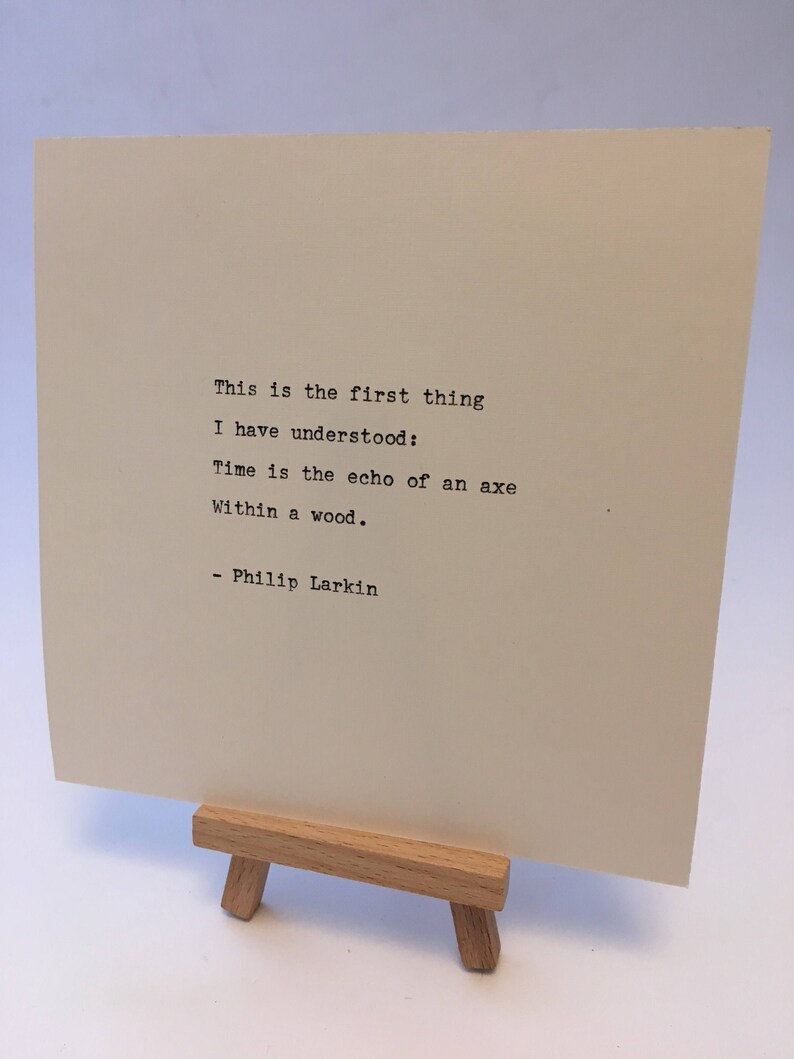 This is the first thing
I have understood:
Time is the echo of an axe
Within a wood.
- Philip Larkin